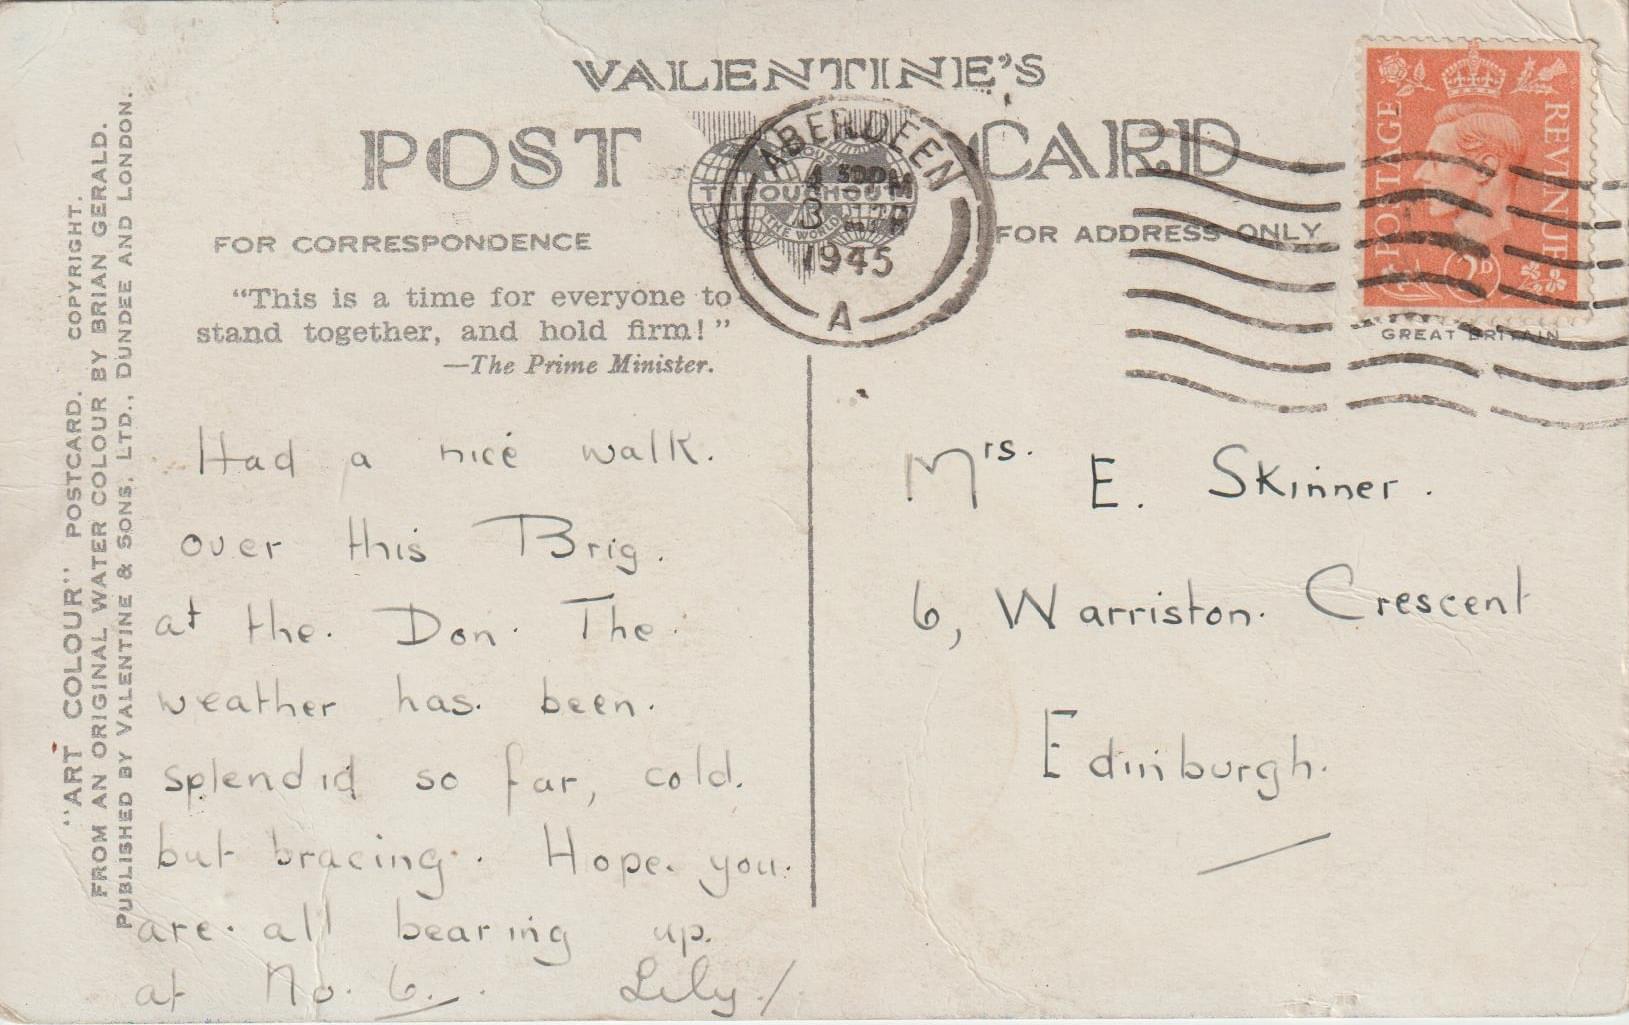 VALENTINE'S
POST CARD
THROUGHOUT
THE WORLD
ABERDEEN
1945
A
POSTAGE
REVENUE
2D
GREAT BRITAIN
FOR CORRESPONDENCE
FOR ADDRESS ONLY
"This is a time for everyone to
stand together, and hold firm!"
—The Prime Minister.
Had a nice walk.
over this Brig.
at the. Don. The.
weather has. been.
splendid so far, cold.
but bracing. Hope. you.
are. all bearing up.
at No. 6. Lily/
Mrs. E. Skinner.
6, Warriston. Crescent
Edinburgh.
"ART COLOUR" POSTCARD. COPYRIGHT.
FROM AN ORIGINAL WATER COLOUR BY BRIAN GERALD.
PUBLISHED BY VALENTINE & SONS, LTD., DUNDEE AND LONDON.